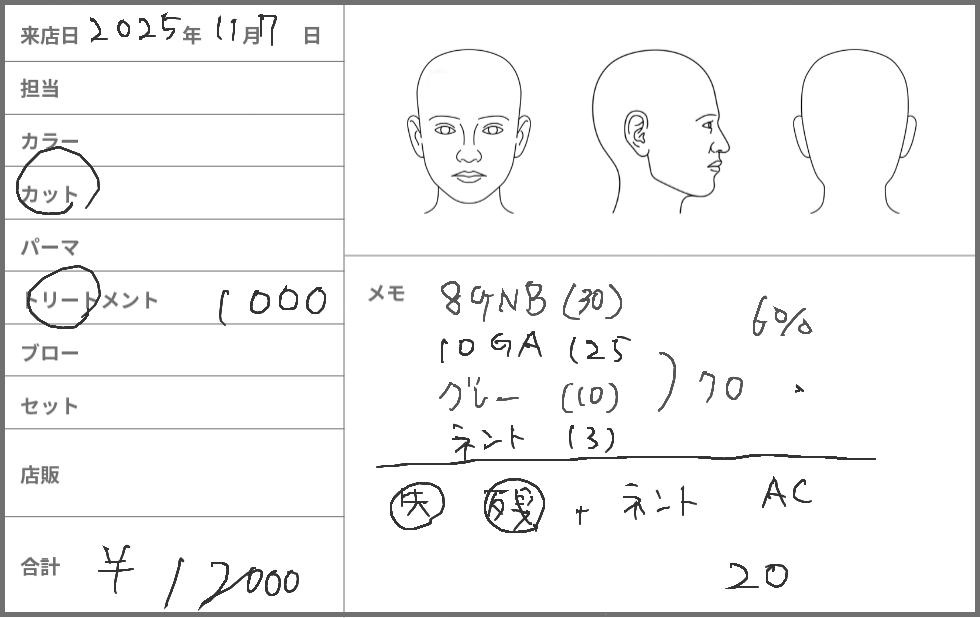 来店日 2025年 11月7日
担当
カラー
カット
パーマ
トリートメント 1000
ブロー
セット
店販
合計 ¥12000
メモ
8GNB (30)
6%
10GA (25
グレー (10) ) 70
ネント (3)
失 残 + ネント AC
20